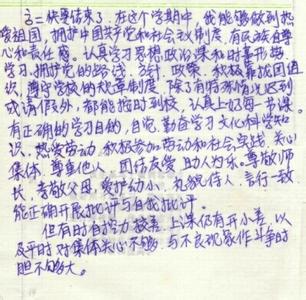 高二快要结束了,在这个学期中,我能够做到热
爱祖国,拥护中国共产党和社会主义制度,有民族自尊
心和责任感。认真学习思想政治课和时事形势
学习,拥护党的路线、方针、政策,积极靠拢团组
织,遵守学校的规章制度,除了有特殊情况迟到
或请假外,都能按时到校,认真上好每一节课。
有正确的学习目的,自觉、勤奋学习文化科学知
识,热爱劳动,积极参加劳动和社会实践,关心
集体,尊重他人、团结友爱、助人为乐。尊敬师
长,孝敬父母,爱护幼小,礼貌待人,言行一致,
能正确开展批评与自我批评。
但有时自控力较差,上课仍有开小差,以
及平时对集体关心不够,与不良现象作斗争时
胆不够大。